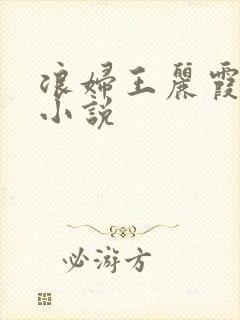 浪婦王麗霞
小說
必游方